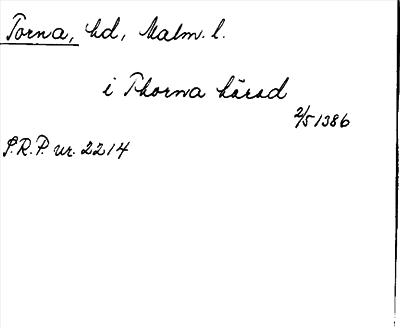 Torna, hd, Malm. l.
i Thorna härad
2/5 1386
S.R.P. nr. 2214